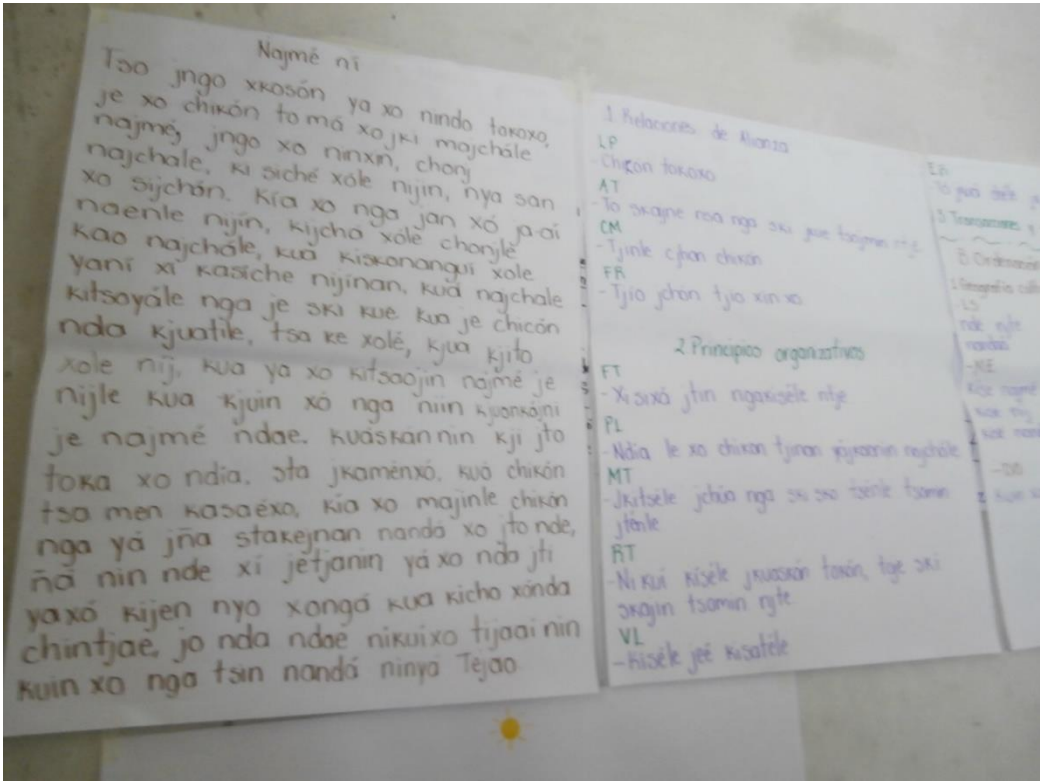 Najmé ni
Tso jngo xkosón ya xo nindo tokoxo,
je xo chikón tomá xo jki majchále
najmé, jngo xo ninxin, chonj
najchale, ki siché xóle nijin, nya san
xo sijchán. Kía xo nga jan xó ja-oí
naenle nijín, kijchá xólé chonjlé
kao najchále, kuá kiskonanguí xole
yaní xí kasíche nijínan, kuá najchale
kitsoyále nga je ski kue kua je chicón
nda kjuatile, tsa ke xolé, kjua kjito
xole nij, kua ya xo kitsaojin najmé je
nijle kua kjuin xó nga niin kjuankájni
je najmé ndae. kuáskán nin kji jto
toka xo ndia, sta jkaménxó, kuó chikón
tsa men kasaéxo, kía xo majinle chikón
nga yá jña stakejnan nandá xo jto nde,
ñá nin nde xí jétjanin yá xo nda jti
yaxó kijen nyo xongá kua kicho xónda
chintjae, jo nda ndae nikuixo tijaai nin
kuin xo nga tsin nandá ninya Tejao
1 Relaciones de Alianza
LP
-Chikon tokoxo
AT
-To skajne roa nga ski
CM
-Tjinle chon chikón
FR
-Tjío jchán tjio xin xo
2 Principios organizativos
FT
-Xi sixá jtin ngakiséle ntje
PL
-Ndia le xo chikon tjinan najchále
MT
-Jkitséle jchúa nga ski sko tsénle tsamin
jténle
RT
-Ni kui kiséle jkuaskán tokón, toje ski
skajin tsamin
VL
-Kiséle jeé kisatéle
3
1
LS
nde
-NE
najmé